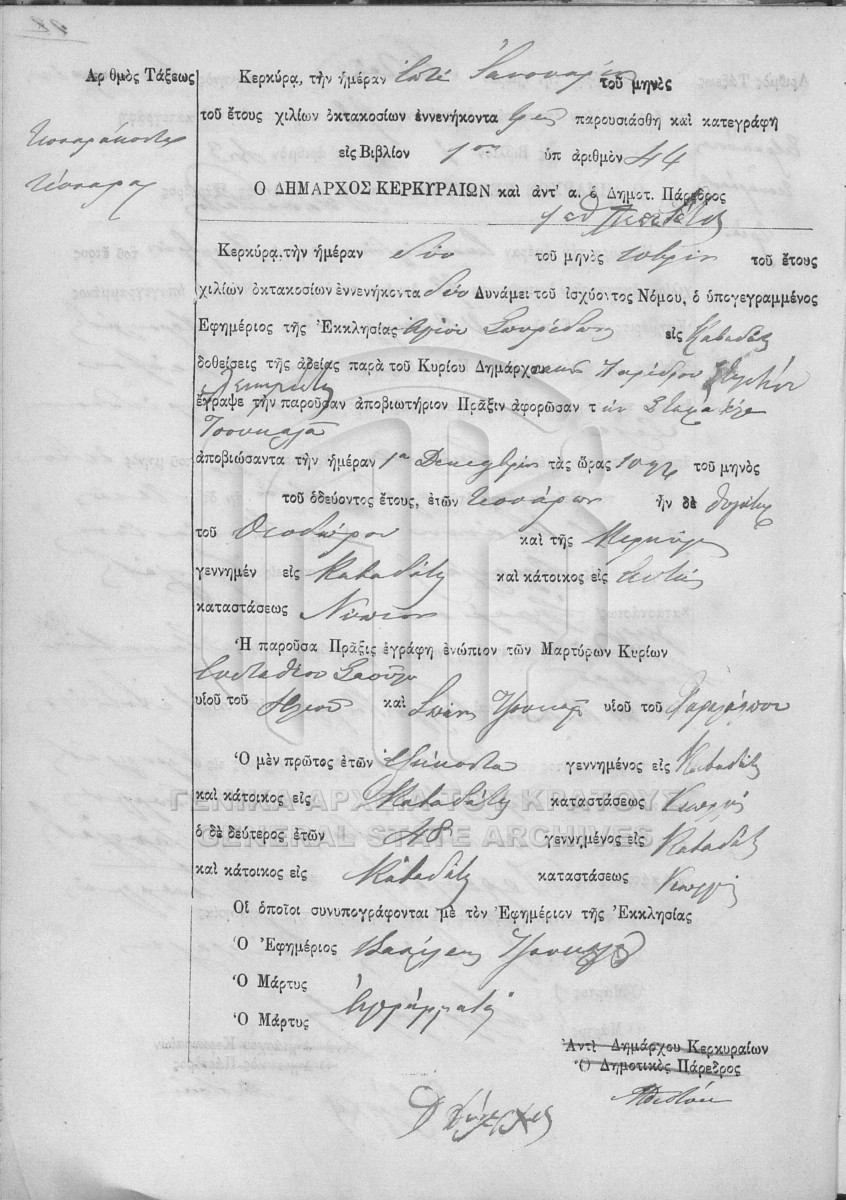 Ἀριθμὸς Τάξεως
Τεσσαράκοντα
τέσσαρα
Κερκύρα, τὴν ἡμέραν ἑπτά Ἰανουαρίου τοῦ μηνὸς
τοῦ ἔτους χιλίων ὀκτακοσίων ἐννενήκοντα τρία παρουσιάσθη καὶ κατεγράφη
εἰς Βιβλίον 1ον ὑπ ἀριθμὸν 44
Ο ΔΗΜΑΡΧΟΣ ΚΕΡΚΥΡΑΙΩΝ καὶ ἀντ' α. ὁ Δημοτ. Πάρεδρος
Κερκύρα, τὴν ἡμέραν δύο τοῦ μηνὸς τοῦ ἔτους
χιλίων ὀκτακοσίων ἐννενήκοντα δύο Δυνάμει τοῦ ἰσχύοντος Νόμου, ὁ ὑπογεγραμμένος
Ἐφημέριος τῆς Ἐκκλησίας Ἁγίου Σπυρίδωνος εἰς Καβαδάτες
δοθείσεις τῆς ἀδείας παρὰ τοῦ Κυρίου Δημάρχου Παρέδρου
ἔγραψε τὴν παροῦσαν ἀποβιωτήριον Πρᾶξιν ἀφορῶσαν τ ὴν
Τσουκαλᾶ
ἀποβιώσαντα τὴν ἡμέραν 1η Δεκεμβρίου τὰς ὥρας τοῦ μηνὸς
τοῦ ὁδεύοντος ἔτους, ἐτῶν τεσσάρων ἦν δὲ θυγάτηρ
τοῦ Θεοδώρου καὶ τῆς
γεννημέν εἰς Καβαδάτες καὶ κάτοικος εἰς αὐτάς
καταστάσεως Νήπιον
Ἡ παροῦσα Πρᾶξις ἐγράφη ἐνώπιον τῶν Μαρτύρων Κυρίων
Εὐσταθίου
υἱοῦ τοῦ καὶ Τζουκαλᾶ υἱοῦ τοῦ Χαραλάμπου
Ὁ μὲν πρῶτος ἐτῶν ἑξήκοντα γεννημένος εἰς Καβαδάτες
καὶ κάτοικος εἰς Καβαδάτες καταστάσεως Γεωργός
ὁ δὲ δεύτερος ἐτῶν 48 γεννημένος εἰς Καβαδάτες
καὶ κάτοικος εἰς Καβαδάτες καταστάσεως Γεωργός
Οἱ ὁποῖοι συνυπογράφονται μὲ τὸν Ἐφημέριον τῆς Ἐκκλησίας
Ὁ Ἐφημέριος Βασίλειος Τζουκαλᾶς
Ὁ Μάρτυς
Ἀγράμματοι
Ὁ Μάρτυς
Ἀντὶ Δημάρχου Κερκυραίων
Ὁ Δημοτικὸς Πάρεδρος
Ὁ Δήμαρχος
ΓΕΝΙΚΑ ΑΡΧΕΙΑ ΤΟΥ ΚΡΑΤΟΥΣ
GENERAL STATE ARCHIVES